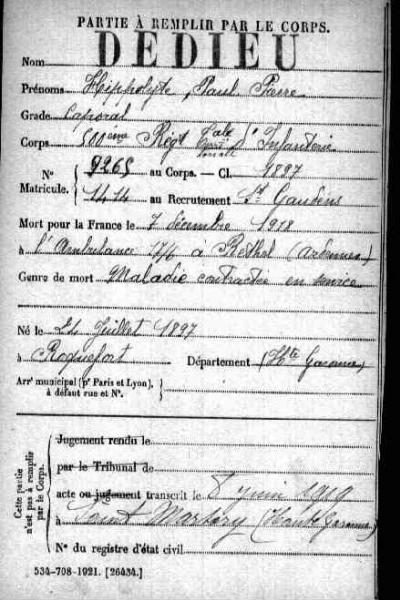 PARTIE À REMPLIR PAR LE CORPS.
Nom DÉDIEU
Prénoms Hippolyte, Paul Pierre
Grade Caporal
Corps 500ème Régt d'Infanterie
N° Matricule. 9265 au Corps. — Cl. 1897
1414 au Recrutement St Gaudens
Mort pour la France le 7 décembre 1918
à l'Ambulance 17/6 à Rethel (Ardennes)
Genre de mort Maladie contractée en service
Né le 24 Juillet 1897
à Roquefort Département (Hte Garonne)
Arrt municipal (pr Paris et Lyon),
à défaut rue et N°.
Cette partie
n'est pas à remplir
par le Corps.
Jugement rendu le
par le Tribunal de
acte ou jugement transcrit le 8 juin 1919
à Saint Martory (Haute Garonne)
N° du registre d'état civil
534-708-1921. [26434.]